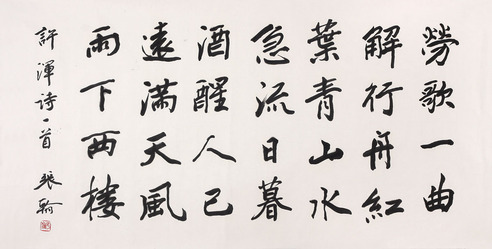 劳歌一曲
解行舟红
葉青山水
急流日暮
酒醒人已
遠满天风
雨下西楼
許渾诗一首 張翰